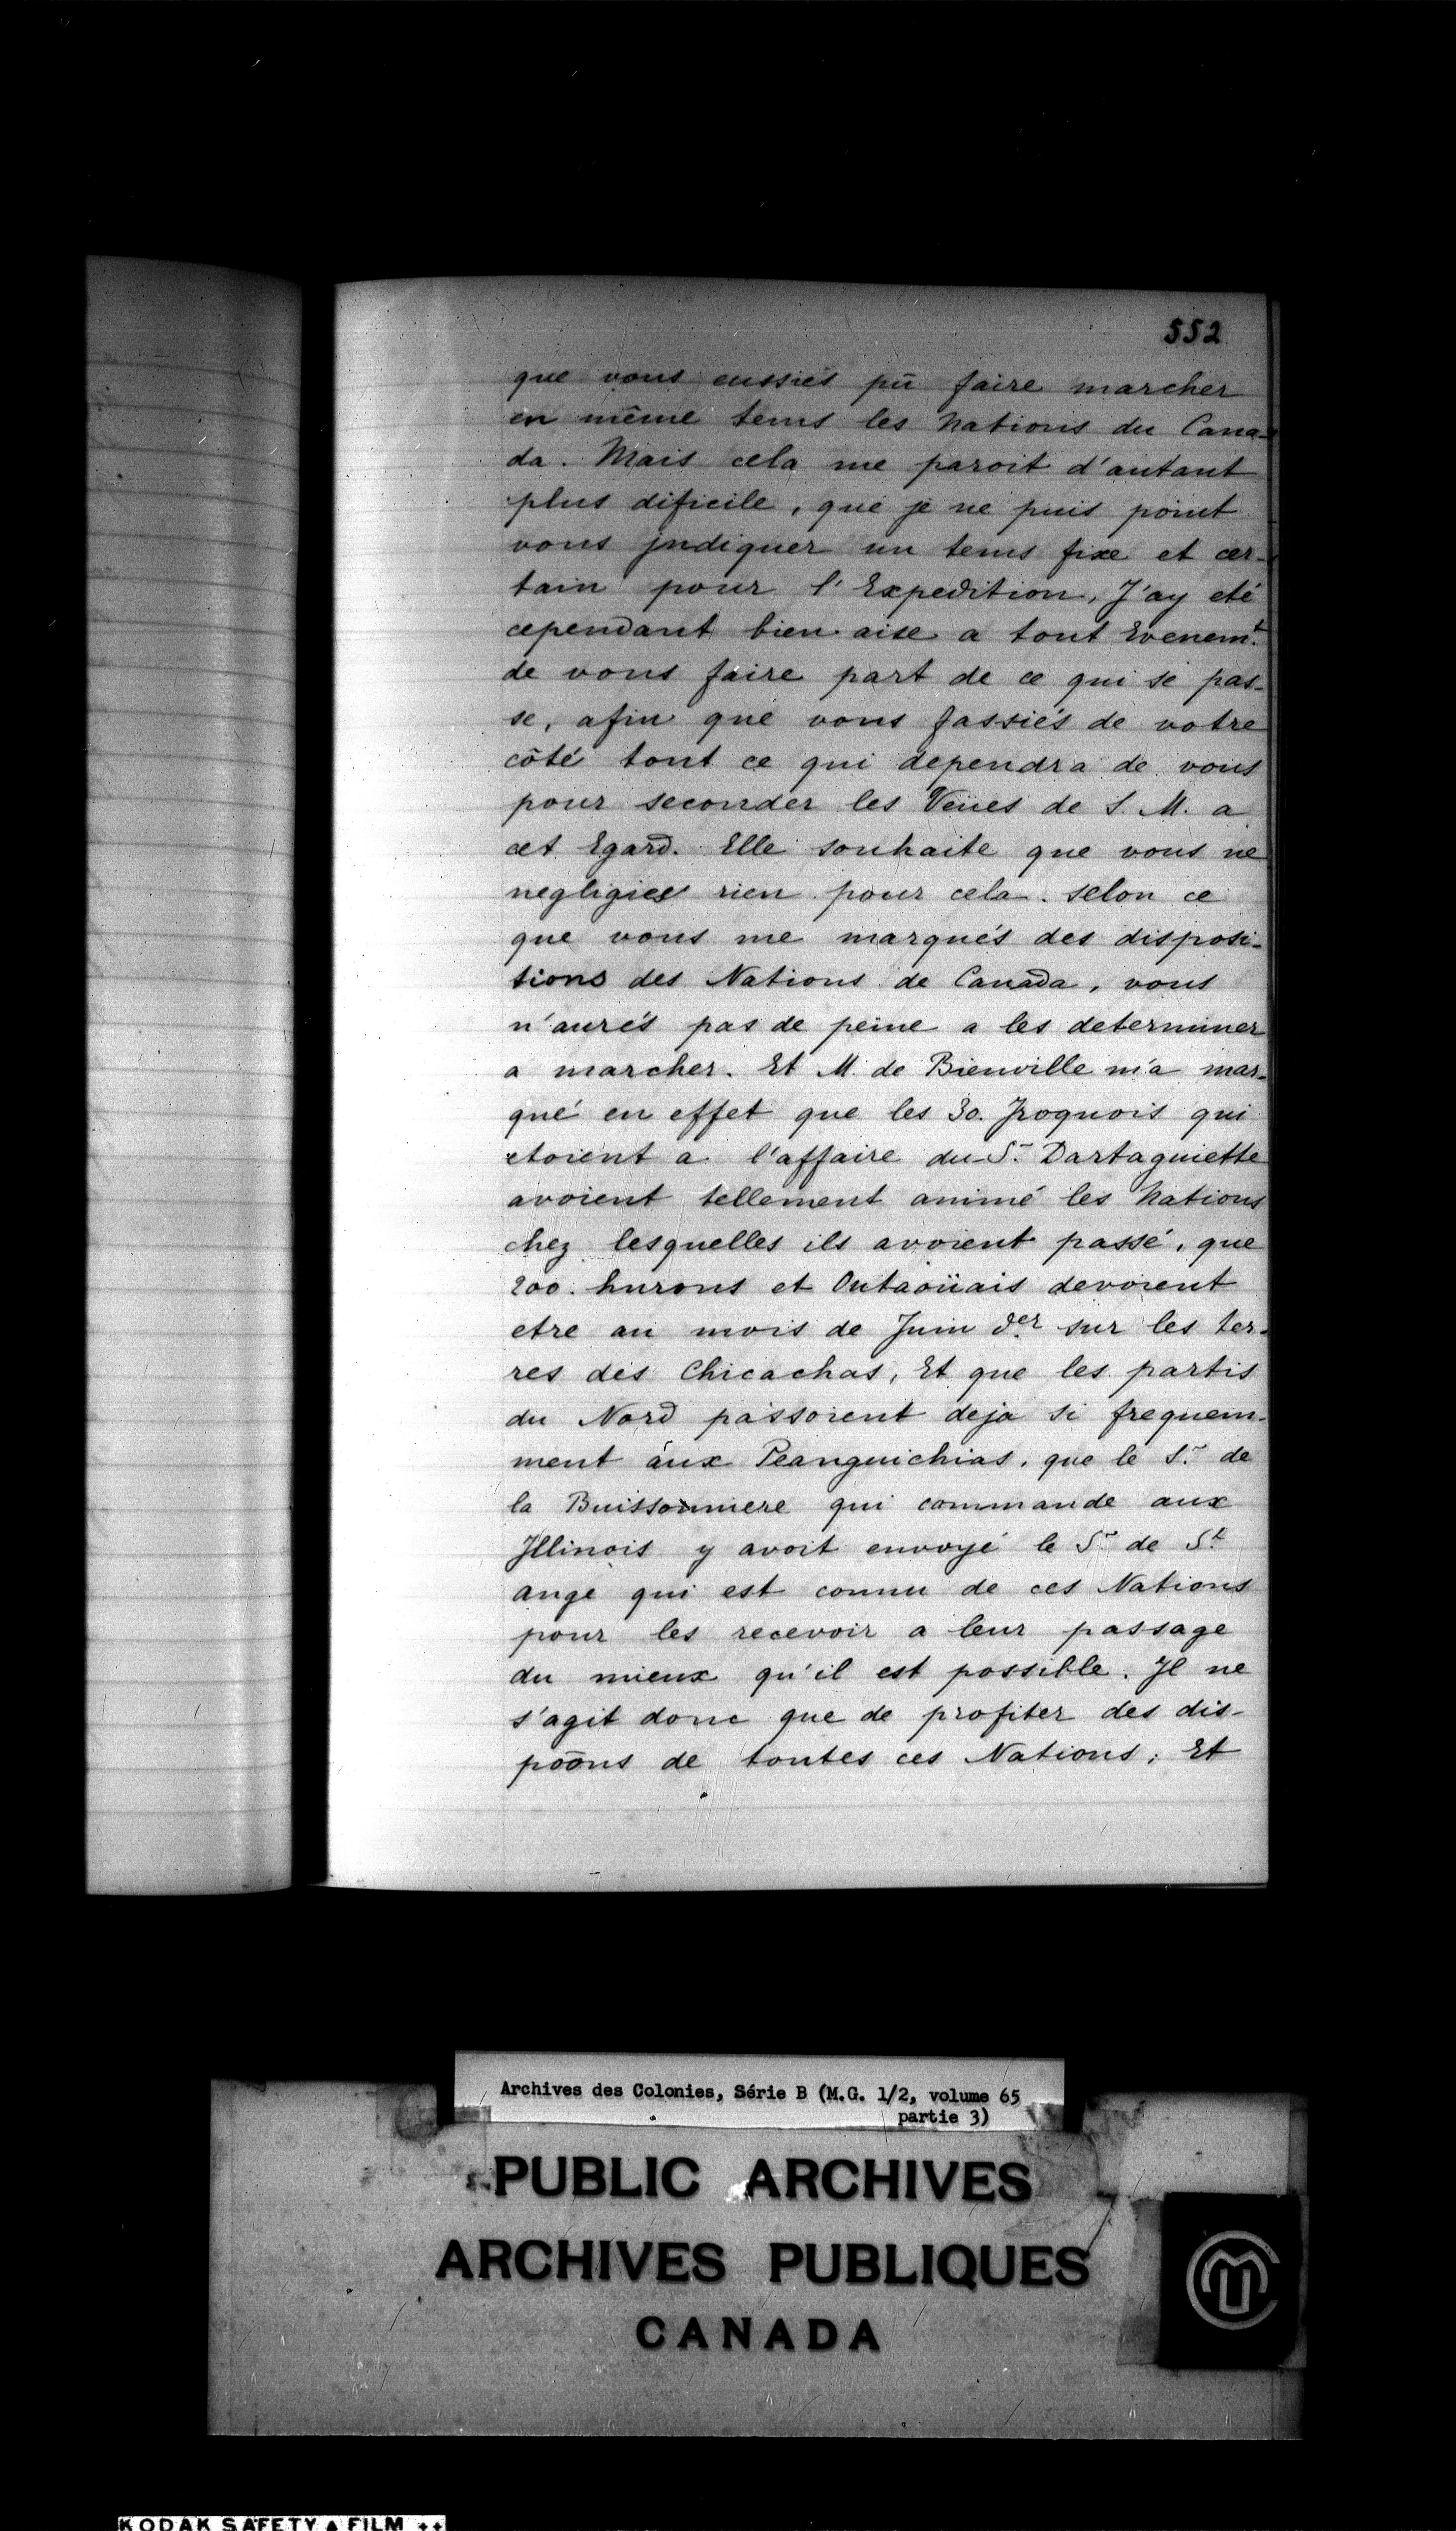 552
que vous eussiés pû faire marcher
en même tems les Nations du Cana-
da. Mais cela me paroit d'autant
plus dificile, que je ne puis point
vous jndiquer un tems fixe et cer-
tain pour l'Expedition, J'ay eté
cependant bien aise a tout Evenemt.
de vous faire part de ce qui se pas-
se, afin que vous fassiés de votre
côté tout ce qui dependra de vous
pour seconder les Veües de S. M. a
cet Egard. Elle souhaite que vous ne
negligies rien pour cela. selon ce
que vous me marqués des disposi-
tions des Nations de Canada, vous
n'aurés pas de peine a les determiner
a marcher. Et M. de Bienville m'a mar-
qué en effet que les 30. Jroquois qui
etoient a l'affaire du Sr. Dartaguiette
avoient tellement animé les Nations
chez lesquelles ils avoient passé, que
200. hurons et Outaoüais devoient
etre au mois de Juin der. sur les ter-
res des Chicachas, Et que les partis
du Nord passoient deja si frequem-
ment aux Peanguichias, que le Sr. de
la Buissonniere qui commande aux
Jllinois y avoit envoyé le Sr. de St.
ange qui est connu de ces Nations
pour les recevoir a leur passage
du mieux qu'il est possible. Il ne
s'agit donc que de profiter des dis-
poõns de toutes ces Nations; Et
Archives des Colonies, Série B (M.G. 1/2, volume 65
partie 3)
PUBLIC ARCHIVES
ARCHIVES PUBLIQUES
CANADA
KODAK SAFETY ▲ FILM ++